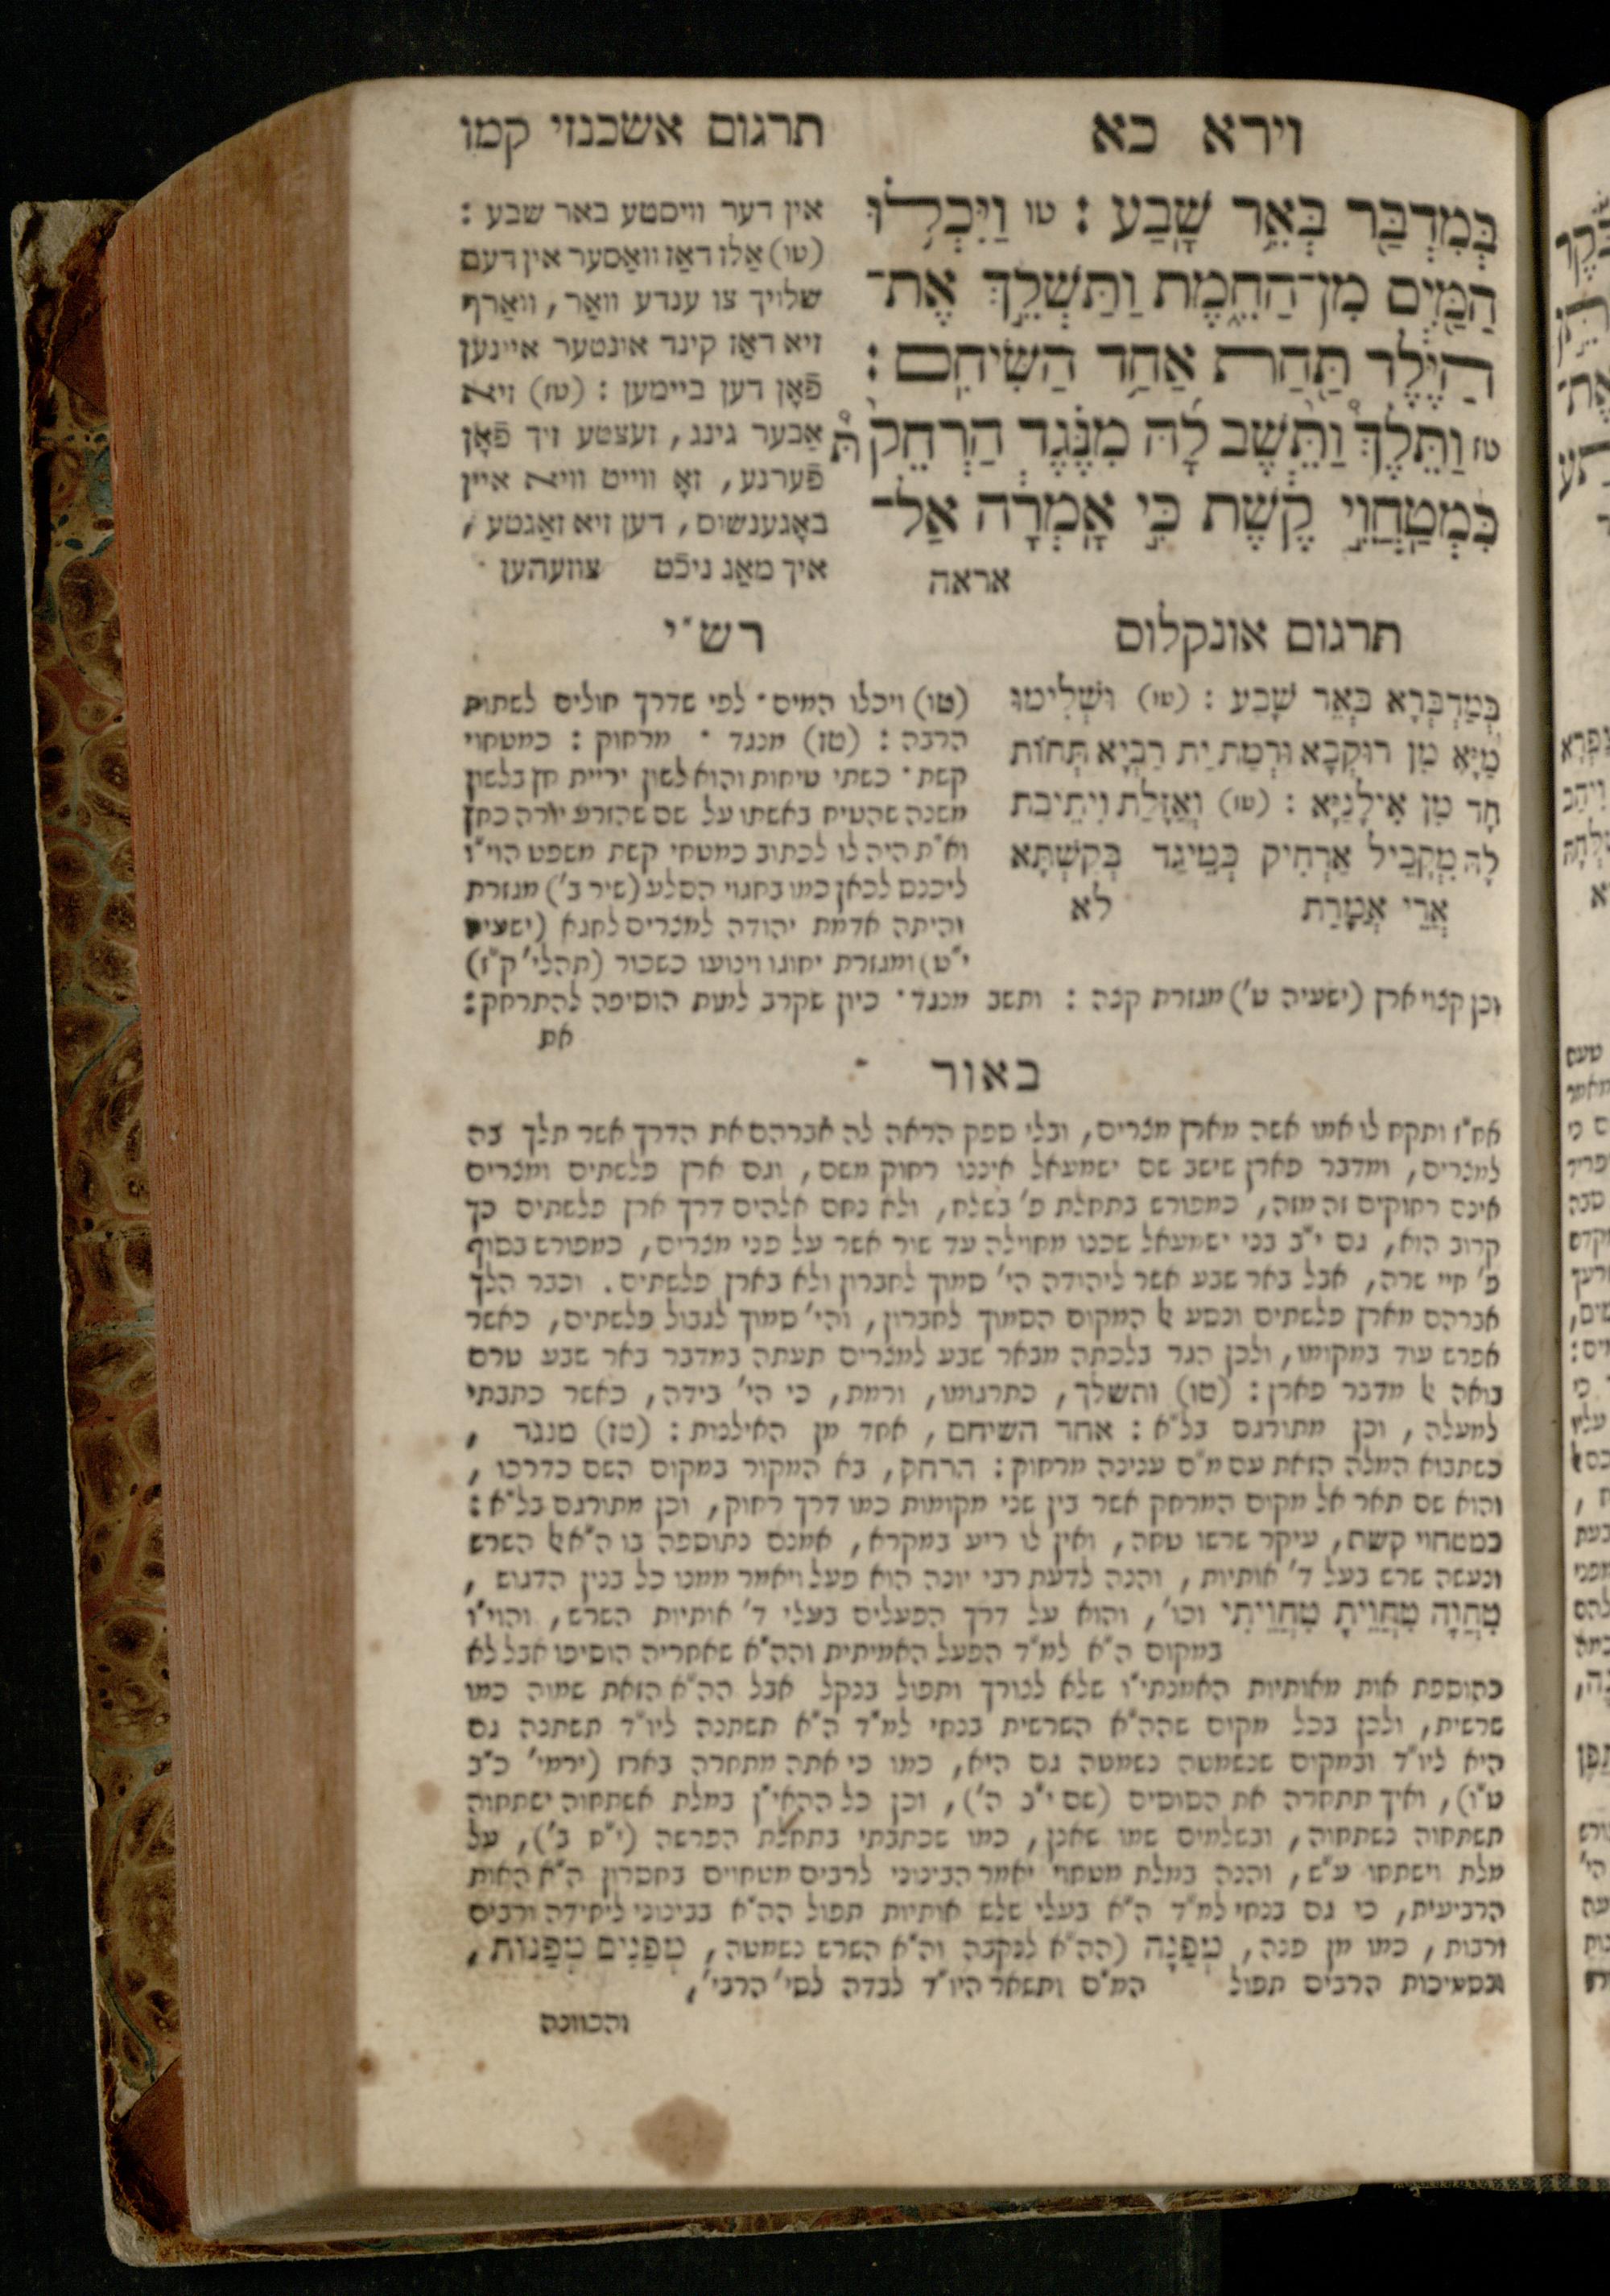 וירא כא
תרגום אשכנזי קמו
בְּמִדְבַּר בְּאֵר שָׁבַע : טו וַיִּכְלוּ
הַמַּיִם מִן־הַחֵמֶת וַתַּשְׁלֵךְ אֶת־
הַיֶּלֶד תַּחַת אַחַד הַשִּׂיחִם :
טז וַתֵּלֶךְ וַתֵּשֶׁב לָהּ מִנֶּגֶד הַרְחֵק
כִּמְטַחֲוֵי קֶשֶׁת כִּי אָמְרָה אַל־
אראה
אין דער וויסטע באר שבע :
(טו) אַלז דאַז וואַסער אין דעם
שלויך צו ענדע וואַר, וואַרף
זיא דאַז קינד אונטער איינען
פֿאָן דען ביימען : (טז) זיא
אַבער גינג, זעצטע זיך פֿאָן
פֿערנע, זאָ ווייט וויא איין
באָגענשוס, דען זיא זאַגטע,
איך מאַג ניכֿט צוזעהען
תרגום אונקלוס
בְּמַדְבְּרָא בְּאֵר שָׁבַע : (טו) וּשְׁלִימוּ
מַיָּא מִן רוּקְבָא וּרְמַת יַת רַבְיָא תְּחוֹת
חָד מִן אִילָנַיָּא : (טז) וַאֲזָלַת וִיתֵיבַת
לָהּ מִקֳבֵיל אַרְחִיק כְּמֵיגַד בְּקַשְׁתָּא
אֲרֵי אֲמָרַת לא
רש״י
(טו) ויכלו המים· לפי שדרך חולים לשתות
הרבה : (טז) מנגד · מרחוק : כמטחוי
קשת · כשתי טיחות והוא לשון יריית חץ בלשון
משנה שהטיח באשתו על שם שהזרע יורה כחץ
וא״ת היה לו לכתוב כמטחי קשת משפט הוי״ו
ליכנס לכאן כמו בחגוי הסלע (שיר ב') מגזרת
והיתה אדמת יהודה למצרים לחגא (ישעיה
י״ט) ומגזרת יחוגו וינועו כשכור (תהלי' ק״ז)
וכן קצוי ארץ (ישעיה ט') מגזרת קצה : ותשב מנגד· כיון שקרב למות הוסיפה להתרחק :
את
באור
אח״ז ותקח לו אמו אשה מארץ מצרים, ובלי ספק הראה לה אברהם את הדרך אשר תלך בה
למצרים, ומדבר פארן שישב שם ישמעאל איננו רחוק משם, וגם ארץ פלשתים ומצרים
אינם רחוקים זה מזה, כמפורש בתחלת פ' בשלח, ולא נחם אלהים דרך ארץ פלשתים כך
קרוב הוא, גם י״ב בני ישמעאל שכנו מחוילה עד שור אשר על פני מצרים, כמפורש בסוף
פ' חיי שרה, אבל באר שבע אשר ליהודה הי' סמוך לחברון ולא בארץ פלשתים. וכבר הלך
אברהם מארץ פלשתים ונסע אל המקום הסמוך לחברון, והי' סמוך לגבול פלשתים, כאשר
אפרש עוד במקומו, ולכן הגר בלכתה מבאר שבע למצרים תעתה במדבר באר שבע טרם
בואה אל מדבר פארן : (טו) ותשלך, כתרגומו, ורמת, כי הי' בידה, כאשר כתבתי
למעלה, וכן מתורגם בל״א : אחד השיחם, אחד מן האילנות : (טז) מנגד,
כשתבוא המלה הזאת עם מ״ם ענינה מרחוק : הרחק, בא המקור במקום השם כדרכו,
והוא שם תאר אל מקום המרחק אשר בין שני מקומות כמו דרך רחוק, וכן מתורגם בל״א :
כמטחוי קשת, עיקר שרשו טחה, ואין לו ריע במקרא, אמנם נתוספה בו ה״א אל השרש
ונעשה שרש בעל ד' אותיות, והנה לדעת רבי יונה הוא פעל ויאמר ממנו כל בנין הדגוש,
טִחֲוָה טִחֲוֵיתָ טִחֲוֵיתִי וכו', והוא על דרך הפעלים בעלי ד' אותיות השרש, והוי״ו
במקום ה״א למ״ד הפעל האמיתית והה״א שאחריה הוסיפו אבל לא
כהוספת אות מאותיות האמנתי״ו שלא לצורך ותפול בנקל אבל הה״א הזאת שמוה כמו
שרשית, ולכן בכל מקום שהה״א השרשית בנחי למ״ד ה״א תשתנה ליו״ד תשתנה גם
היא ליו״ד ובמקום שנשמטה נשמטה גם היא, כמו כי אתה מתחרה בארז (ירמי' כ״ב
ט״ו), ואיך תתחרה את הסוסים (שם י״ב ה'), וכן כל ההאי״ן במלת אשתחוה ישתחוה
תשתחוה נשתחוה, ובשלמים שמו שאנן, כמו שכתבתי בתחלת הפרשה (י״ח ב'), על
מלת וישתחו ע״ש, והנה במלת מטחוי יאמר הבינוני לרבים מטחוים בחסרון ה״א האות
הרביעית, כי גם בנחי למ״ד ה״א בעלי שלש אותיות תפול הה״א בבינוני ליחידה ורבים
ורבות, כמו מן פנה, מְפַנָּה (הה״א לנקבה וה״א השרש נשמטה, מְפַנִּים מְפַנּוֹת,
ובסמיכות הרבים תפול המ״ם ותשאר היו״ד לבדה לסי' הרבי',
והכוונה